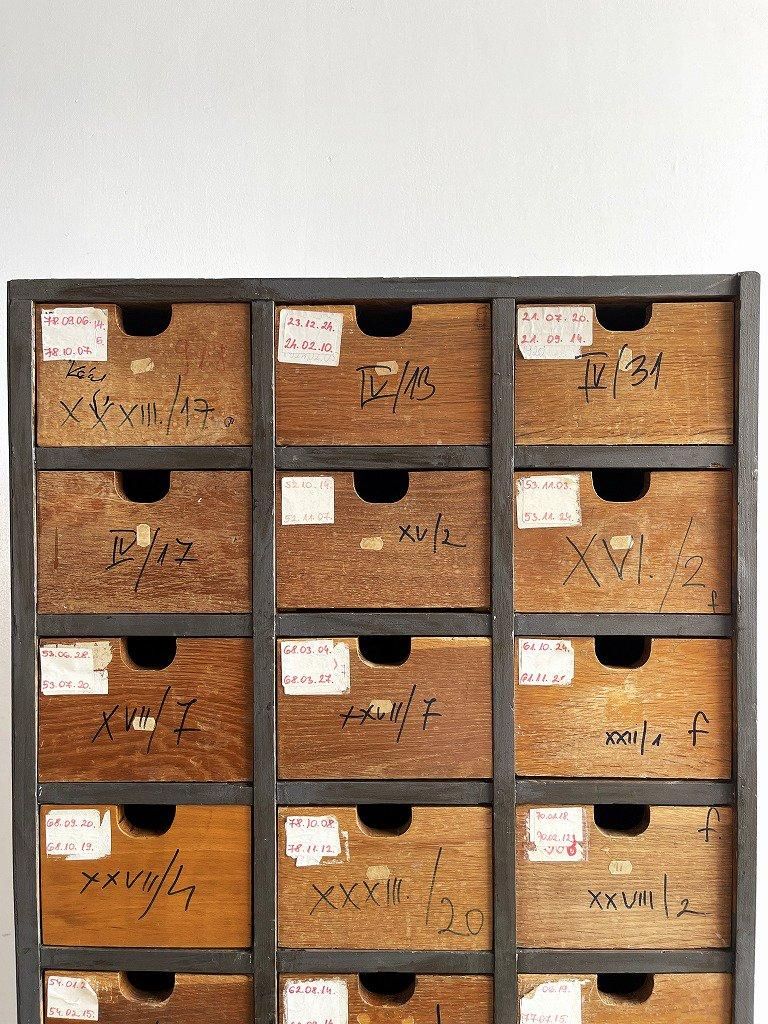 78.09.06.
78.10.07.
XXXIII./17.
23.12.24.
24.02.10.
IV/13
21. 07. 20.
21. 09. 14.
IV/31
IV/17
52.10.14
52.11.07.
XV/2
53.11.03.
53.11.24.
XVI./2
f
53.06.28.
53.07.20.
XVII/7
68.03.04.
68.03.27.
XXVII/7
61.10.24.
61.11.2
XXII/1 f
68.09.20.
68.10.19.
XXVII/4
78.10.08.
78.11.12.
XXXIII./20
70.01.18.
70.02.12.
f.
XXVIII/2
54.01.2
54.02.15.
62.08.14.
06.19.
77.07.15.